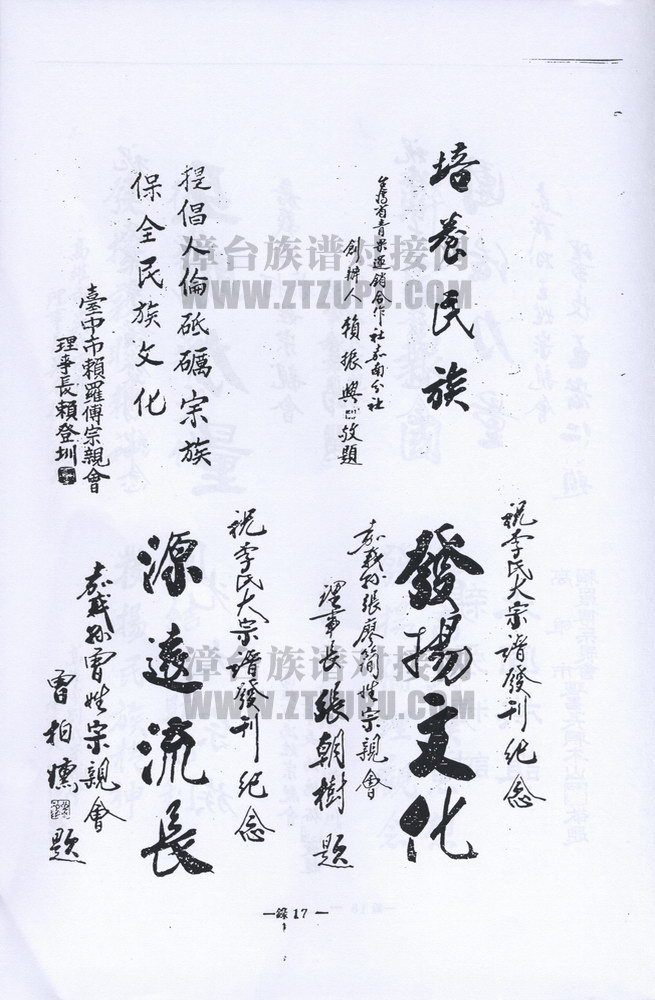 培養民族
台灣省青果運銷合作社嘉南分社
創辦人 賴振興 敬題
提倡人倫砥礪宗族
保全民族文化
臺中市賴羅傅宗親會
理事長賴登圳
祝李氏大宗譜發刊紀念
發揚文化
嘉義縣張廖簡姓宗親會
理事長 張朝樹 題
祝李氏大宗譜發刊紀念
源遠流長
嘉義縣曾姓宗親會
曾柏 題
漳台族谱对接网
WWW.ZTZUPU.COM
漳台族谱对接网
WWW.ZTZUPU.COM
—錄17—